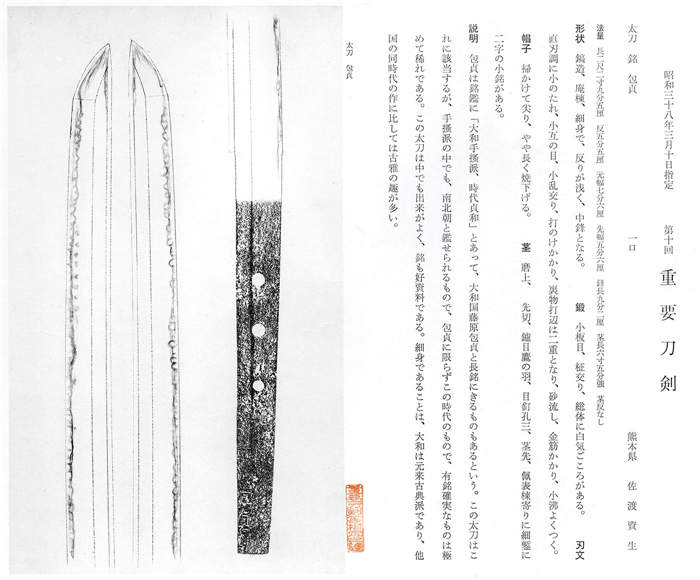 昭和三十八年三月十日指定　第十回　重要刀剣
太刀　銘　包貞　一口　熊本県　佐渡資生
法量　長二尺二寸九分五厘　反五分五厘　元幅七分六厘　先幅五分六厘　鋒長九分二厘　茎長六寸五分強　茎反なし
形状　鎬造、庵棟、細身で、反りが浅く、中鋒となる。　鍛　小板目、柾交り、総体に白気ごころがある。　刃文
直刃調に小のたれ、小互の目、小乱交り、打のけかかり、裏物打辺は二重となり、砂流し、金筋かかり、小沸よくつく。
帽子　掃かけて尖り、やや長く焼下げる。　茎　磨上、先切、鑢目鷹の羽、目釘孔三、茎先、佩表棟寄りに細鏨に
二字の小銘がある。
説明　包貞は銘鑑に「大和手掻派、時代貞和」とあって、大和国藤原包貞と長銘にきるものもあるという。この太刀はこ
れに該当するが、手掻派の中でも、南北朝と鑑せられるもので、包貞に限らずこの時代のもので、有銘確実なものは極
めて稀れである。この太刀は中でも出来がよく、銘も好資料である。細身であることは、大和は元来古典派であり、他
国の同時代の作に比しては古雅の趣が多い。
太刀　包貞